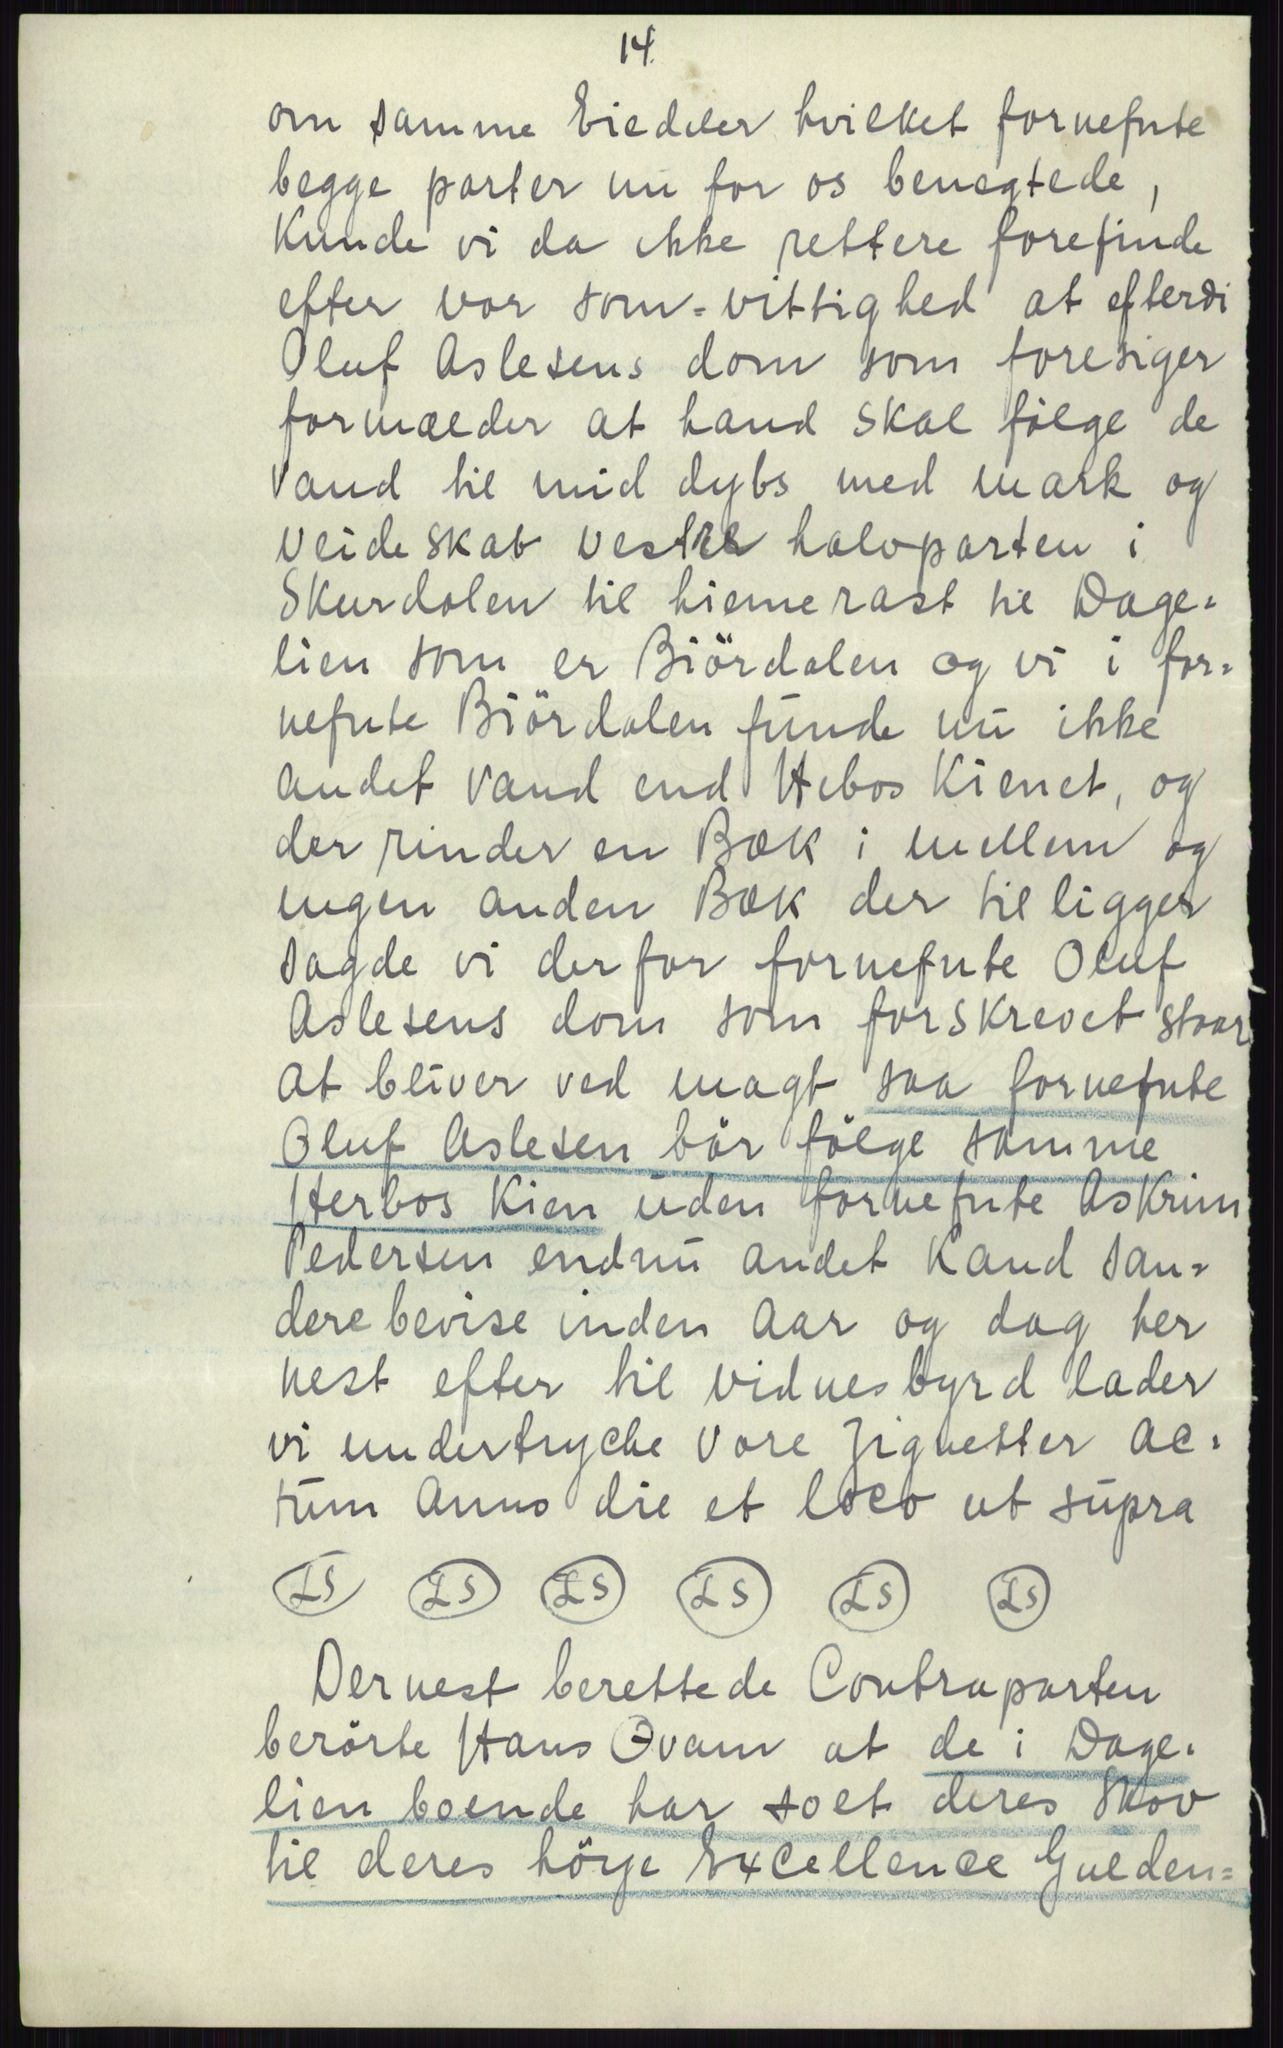 14.
om samme Eiedeler hvilket fornefnte
begge parter nu for os benegtede,
Kunde vi da ikke rettere forefinde
efter vor som=vittighed at efterdi
Oluf Aslesens dom som foresiger
formælder at hand skal følge de
vand til mid dybs med mark og
veideskab vestre halvparten i
Skurdalen til hiemerast til Dage=
lien som er Biördalen og vi i for=
nefnte Biördalen funde nu ikke
andet vand end Hebos Kienet, og
der rinder en Bæk i mellem og
ingen anden Bæk der til ligger
sagde vi derfor fornefnte Oluf
Aslesens dom som forskrevet staar
at bliver ved magt saa fornefnte
Oluf Aslesen bör fölge samme
Herbos Kien uden fornefnte Askrim
Pedersen endnu andet Kand san=
dere bevise inden Aar og dag her
nest efter til vidnesbyrd lader
vi undertryche vore Zignetter Ac=
tum Anno die et loco ut supra
LS LS LS LS LS LS
Dernest berettede Contraparten
berörte Hans Ovam at de i Dage=
lien boende har solt deres skov
til deres höye Excellence Gulden=